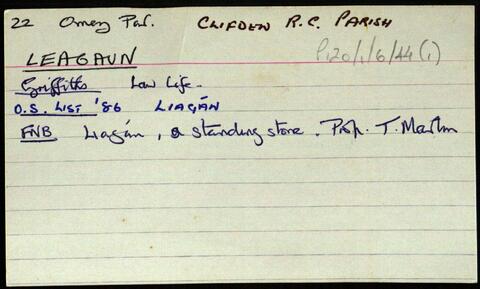 22 Omey Par. CLIFDEN R.C. PARISH
P120/1/6/44(1)
LEAGAUN
Griffiths Law Life.
O.S. LIST '86 LIAGÁN
FNB Liagán, a standing stone. Prop. T. Martin